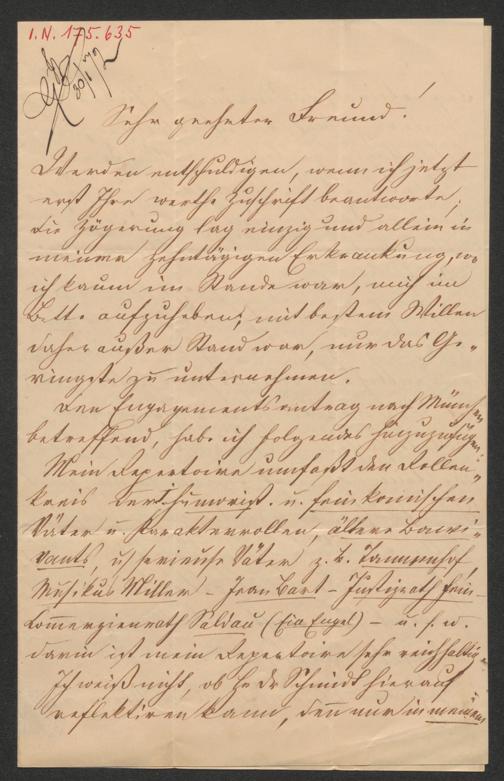 I.N. 175.635
Sehr geehrter Freund!
Werden entschuldigen, wenn ich jetzt
erst Ihre werthe Zuschrift beantworte;
die Zögerung lag einzig und allein in
meiner zehntägigen Erkrankung, wo
ich kaum im Stande war, mich im
Bette aufzuheben, mit bestem Willen
daher außer Stand war, nur das Ge-
ringste zu unternehmen.
Den Engagementsantrag nach München
betreffend, habe ich folgendes hinzuzufügen:
Mein Repertoire umfaßt den Rollen-
kreis der humorist. u. feinkomischen
Väter u. Karakterrollen, ältere Bonvi-
vants, u. serieuse Väter z. B. Tannenhof
Musikus Miller – Jean Bart – Justizrath Fein-
Kommerzienrath Saldau (Ein Engel) – u. s. w.
darin ist mein Repertoire sehr reichhaltig.
Ich weiß nicht, ob H. Dr Schmidt hierauf
reflektiren kann, denn nur in meinem